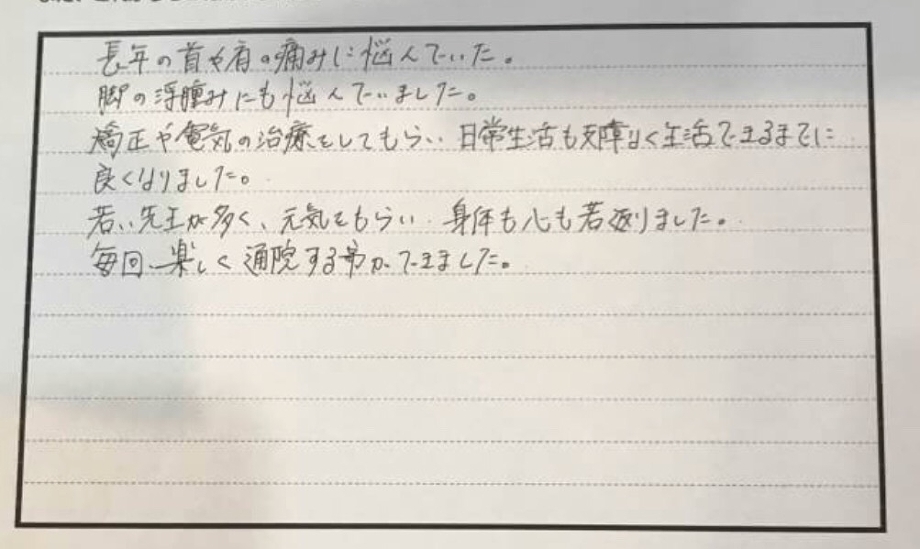 長年の首や肩の痛みに悩んでいた。
脚の浮腫みにも悩んでいました。
矯正や電気の治療をしてもらい、日常生活も支障なく生活できるまでに
良くなりました。
若い先生が多く、元気をもらい、身体も心も若返りました。
毎回、楽しく通院する事ができました。